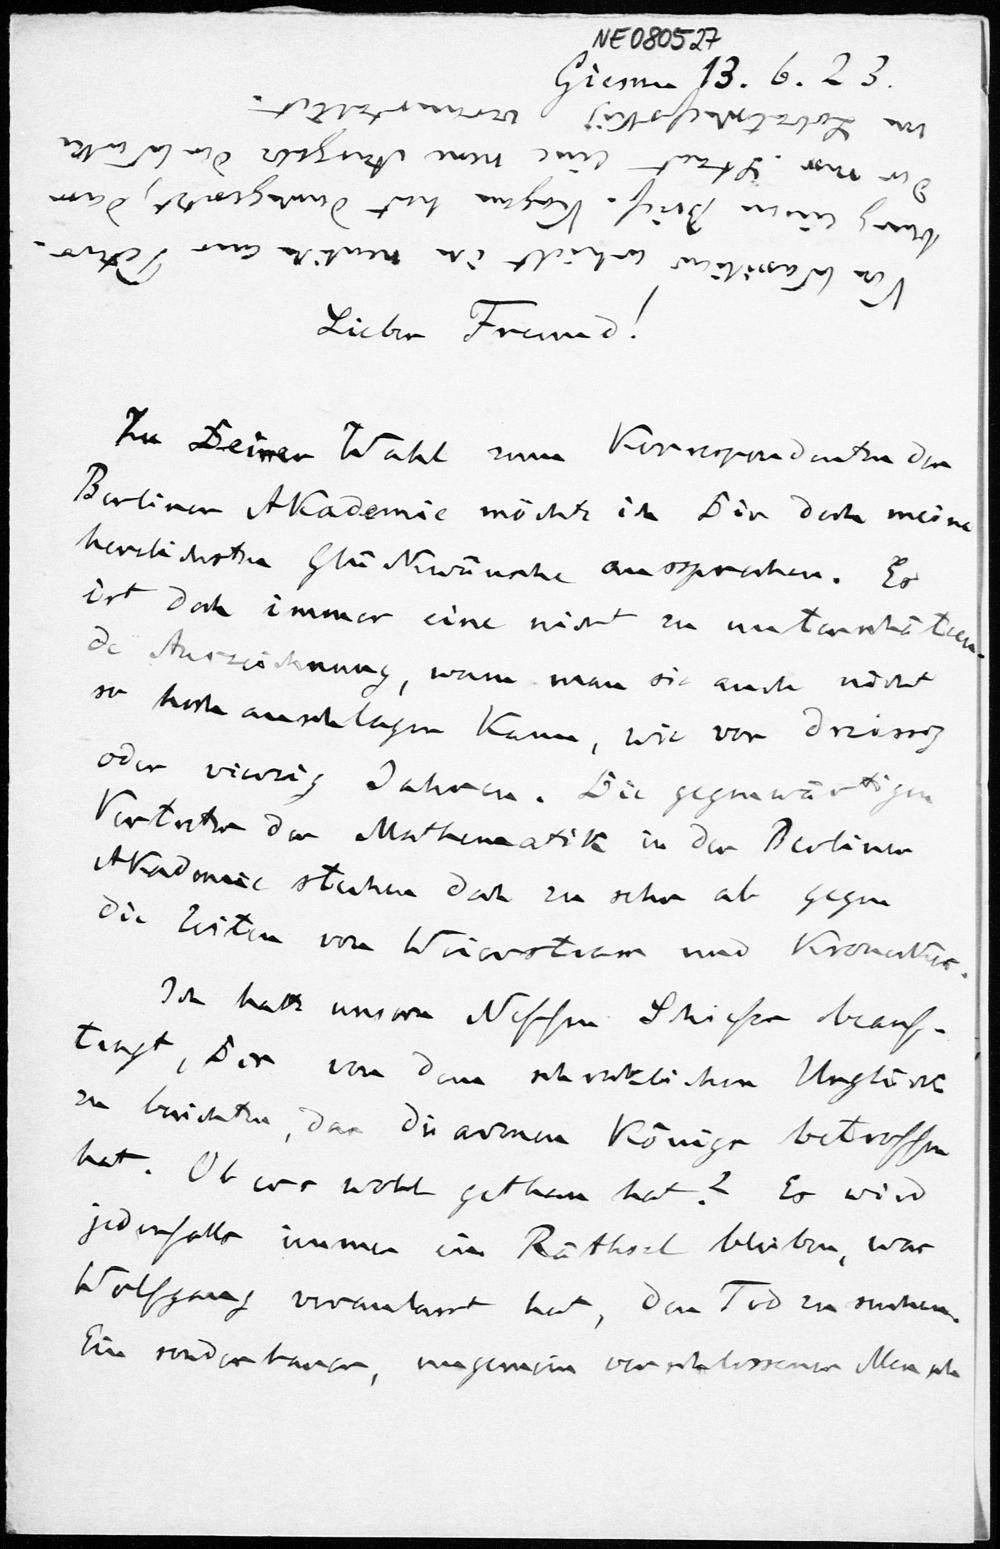 NE080527
Giessen 13. 6. 23.
Von Wassiliew erhielt ich neulich aus Peters-
burg einen Brief. Kagan hat durchgesetzt, dass
der russ. Staat eine neue Ausgabe der Werke
von Lobatschefskij veranstaltet.
Lieber Freund!
Zu Deiner Wahl zum Korrespondenten der
Berliner Akademie möchte ich Dir doch meine
herzlichsten Glückwünsche aussprechen. Es
ist doch immer eine nicht zu unterschätzen-
de Auszeichnung, wenn man sie auch nicht
so hoch anschlagen kann, wie vor dreissig
oder vierzig Jahren. Die gegenwärtigen
Vertreter der Mathematik in der Berliner
Akademie stechen doch zu sehr ab gegen
die Zeiten von Weierstrass und Kronecker.
Ich hatte unsern Neffen beauf-
tragt, Dir von dem schrecklichen Unglück
zu berichten, das die armen Königs betroffen
hat. Ob er es wohl gethan hat? Es wird
jedenfalls immer ein Räthsel bleiben, was
Wolfgang veranlasst hat, den Tod zu suchen.
Ein sonderbarer, ungemein verschlossener Mensch